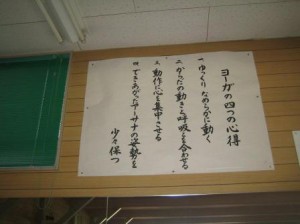 ヨーガの四つの心得
一 ゆっくりなめらかに動く
二 からだの動きと呼吸を合わせる
三 動作に心を集中させる
四 できあがったアーサナの姿勢を
少々保つ